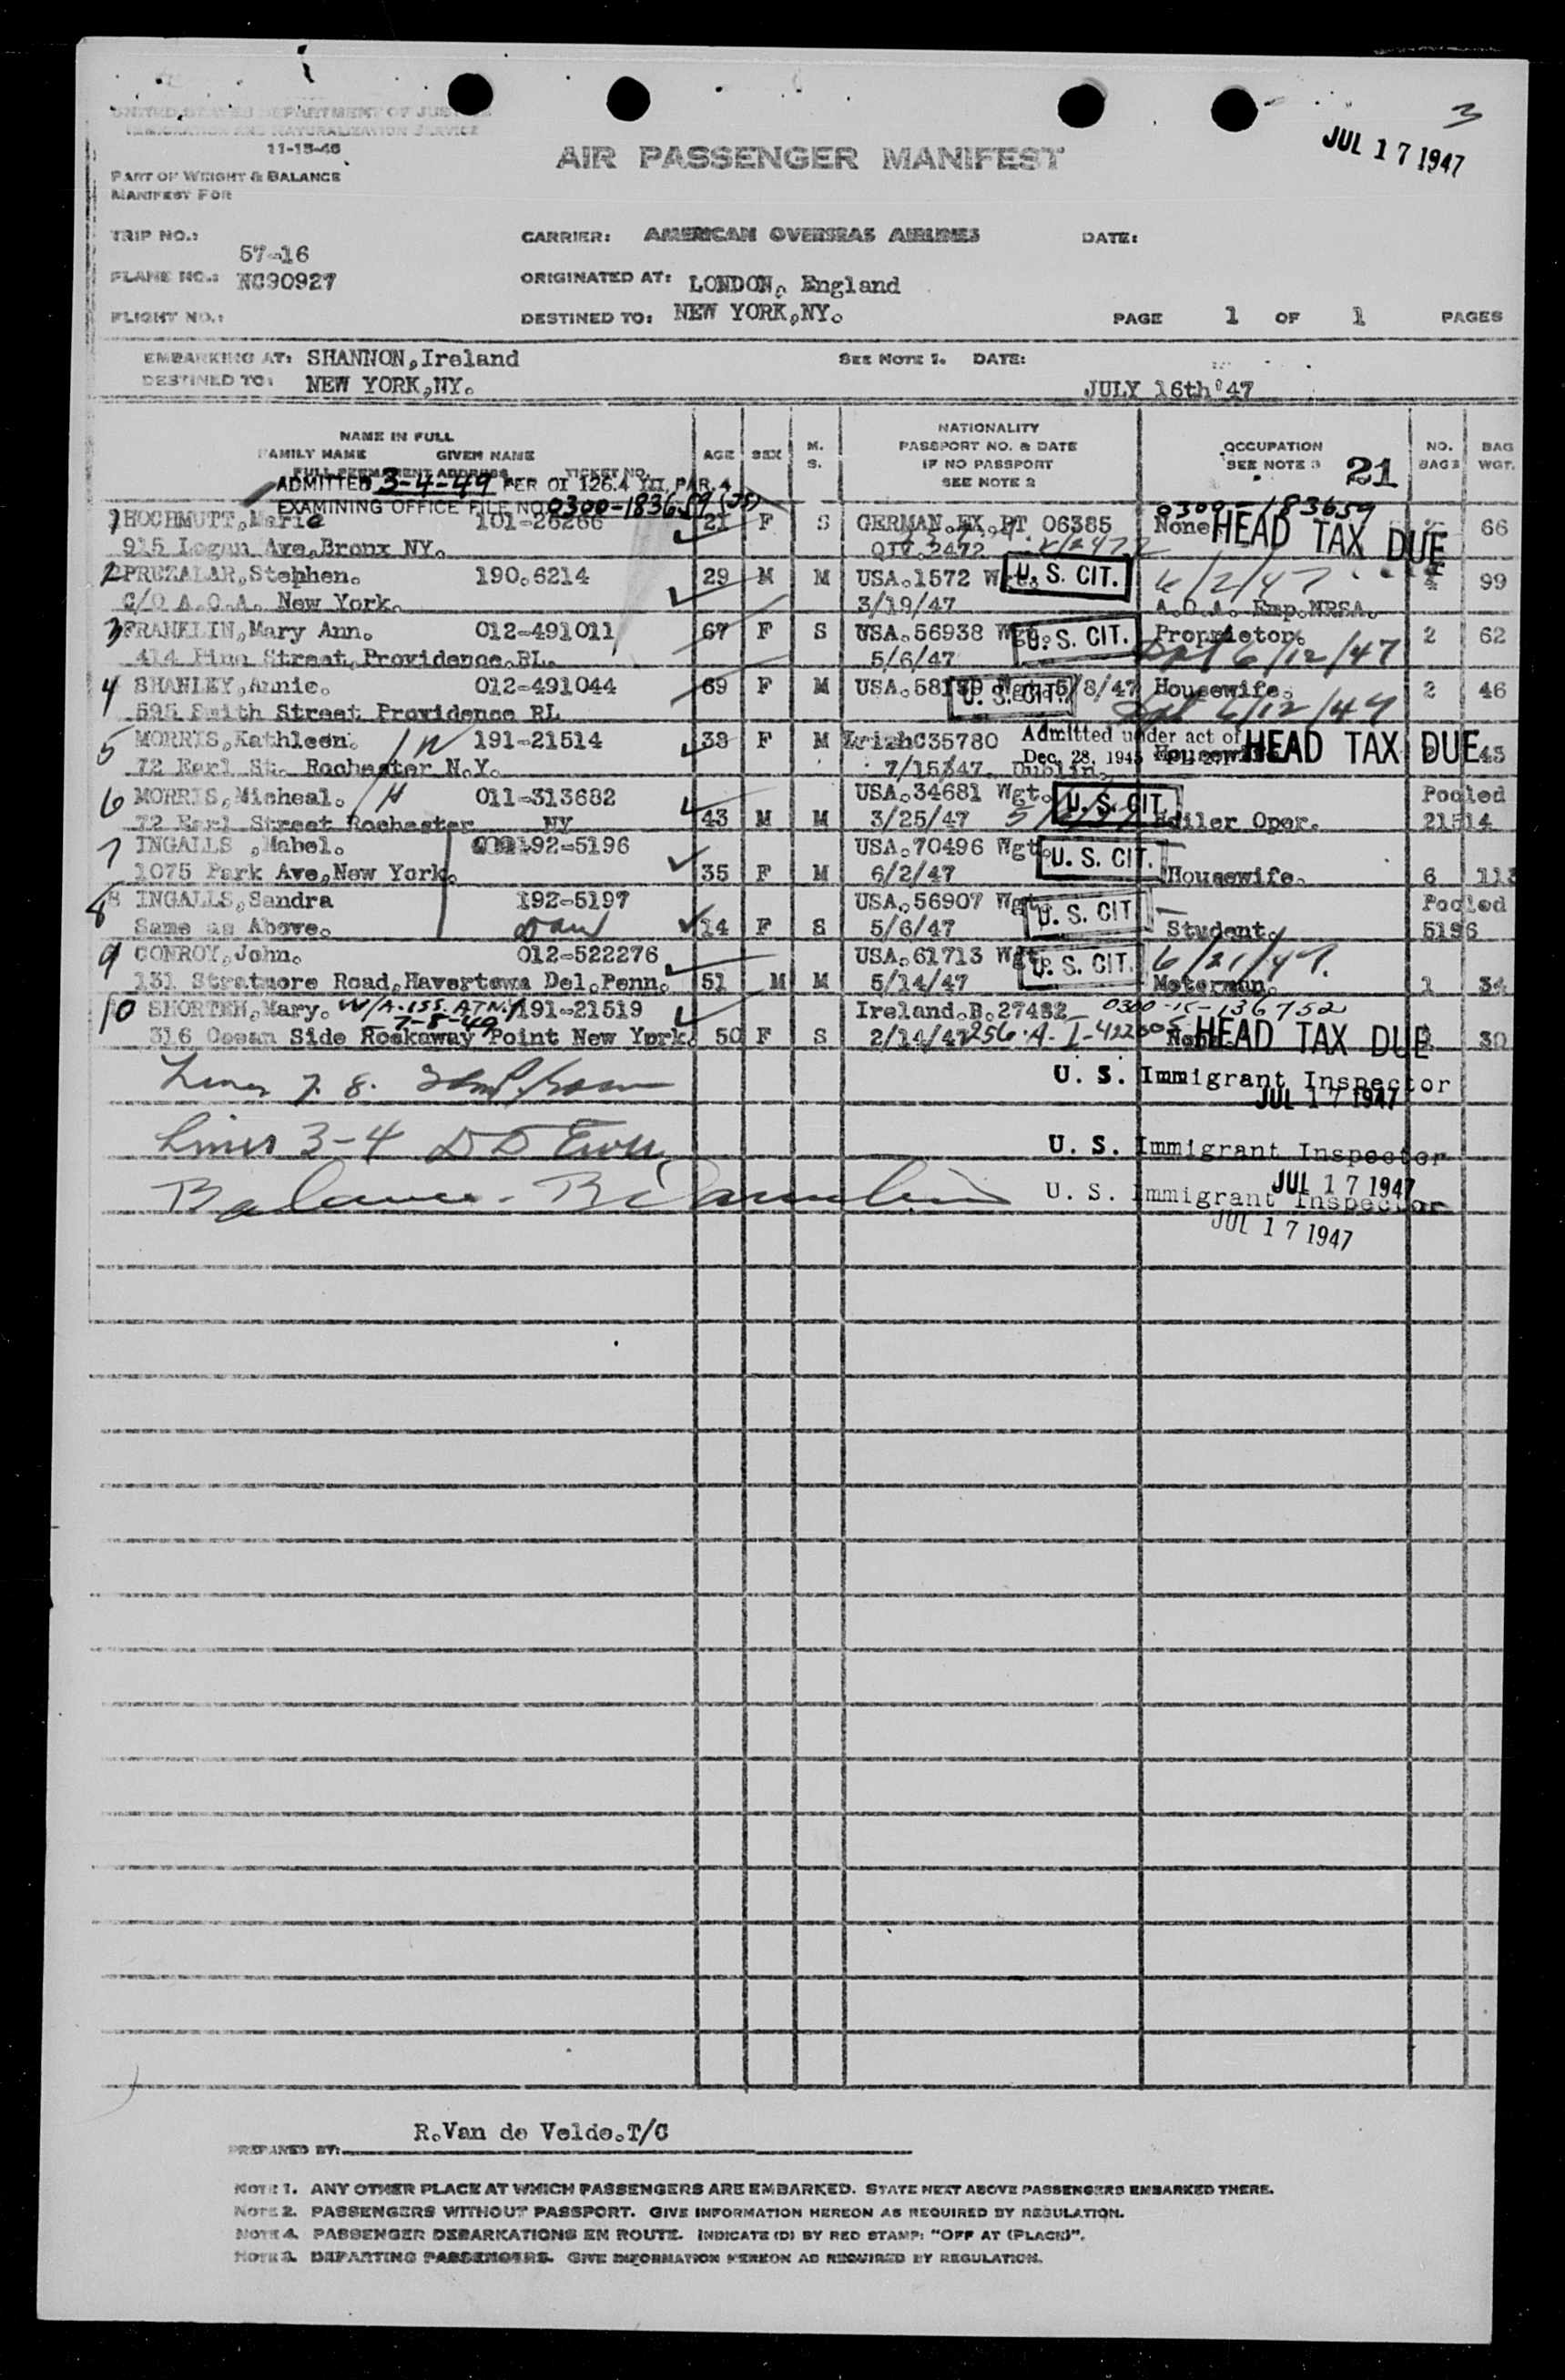 3
JUL 17 1947
UNITED STATES DEPARTMENT OF JUSTICE
IMMIGRATION AND NATURALIZATION SERVICE
11-15-46
AIR PASSENGER MANIFEST
PART OF WEIGHT & BALANCE
MANIFEST FOR
TRIP NO.: 57-16 CARRIER: AMERICAN OVERSEAS AIRLINES DATE:
PLANE NO.: NC90927 ORIGINATED AT: LONDON, England
FLIGHT NO.: DESTINED TO: NEW YORK,NY. PAGE 1 OF 1 PAGES
EMBARKING AT: SHANNON,Ireland SEE NOTE 1. DATE:
DESTINED TO: NEW YORK,NY. JULY 16th'47
NAME IN FULL
FAMILY NAME GIVEN NAME AGE SEX M. S. NATIONALITY PASSPORT NO. & DATE IF NO PASSPORT SEE NOTE 2 OCCUPATION SEE NOTE 3 NO. BAGS BAG WGT.
FULL PERMANENT ADDRESS TICKET NO. 21
ADMITTED 3-4-49 PER OI 126.4 PAR. 4
EXAMINING OFFICE FILE NO 0300-183659 (JS) 0300-183659
1 HOCHMUTT,Marie 101-26266 21 F S GERMAN.EX.PT 06385 None HEAD TAX DUE 66
915 Logan Ave,Bronx NY. 2472
2 PRUZALAR,Stephen. 190.6214 29 M M USA.1572 U. S. CIT. 6/2/47 4 99
C/O A.O.A. New York. 3/19/47 A.O.A. Emp.
3 FRANKLIN,Mary Ann. 012-491011 67 F S USA.56938 Wgt. U. S. CIT. Proprietor. 2 62
414 Pine Street,Providence.RL. 5/6/47 6/12/47
4 SHANLEY,Annie. 012-491044 69 F M USA. Wgt. 5/8/47 U. S. CIT. Housewife. 2 46
595 Smith Street Providence RL 6/12/47
5 MORRIS,Kathleen. 191-21514 38 F M IrishC35780 Admitted under act of HEAD TAX DUE 45
72 Earl St. Rochester N.Y. 7/15/47. Dublin. Dec. 28, 1945 Housewife
6 MORRIS,Micheal. /H 011-313682 USA.34681 Wgt. U. S. CIT. Pooled
72 Earl Street Rochester NY 43 M M 3/25/47 Boiler Oper. 21514
7 INGALLS ,Mabel. 192-5196 USA.70496 Wgt. U. S. CIT.
1075 Park Ave,New York. 35 F M 6/2/47 Housewife. 6 113
8 INGALLS,Sandra 192-5197 USA.56907 Wgt. U. S. CIT Pooled
Same as Above. Dau 14 F S 5/6/47 Student. 5196
9 CONROY,John. 012-522276 USA.61713 Wgt. U. S. CIT. 6/21/47.
131 Stratmore Road,Havertown Del.Penn. 51 M M 5/14/47 Moterman. 1 34
10 SHORTEN,Mary. 191-21519 Ireland.B.27432 0300-136752
7-8-49
316 Ocean Side Rockaway Point New York. 50 F S 2/14/47 None HEAD TAX DUE 30
Lines 7. 8. U. S. Immigrant Inspector
JUL 17 1947
Lines 3-4 U. S. Immigrant Inspector
JUL 17 1947
Balance - U. S. Immigrant Inspector
JUL 17 1947
PREPARED BY: R.Van de Velde.T/C
NOTE 1. ANY OTHER PLACE AT WHICH PASSENGERS ARE EMBARKED. STATE NEXT ABOVE PASSENGERS EMBARKED THERE.
NOTE 2. PASSENGERS WITHOUT PASSPORT. GIVE INFORMATION HEREON AS REQUIRED BY REGULATION.
NOTE 4. PASSENGER DEBARKATIONS EN ROUTE. INDICATE (D) BY RED STAMP: "OFF AT (PLACE)".
NOTE 3. DEPARTING PASSENGERS. GIVE INFORMATION HEREON AS REQUIRED BY REGULATION.